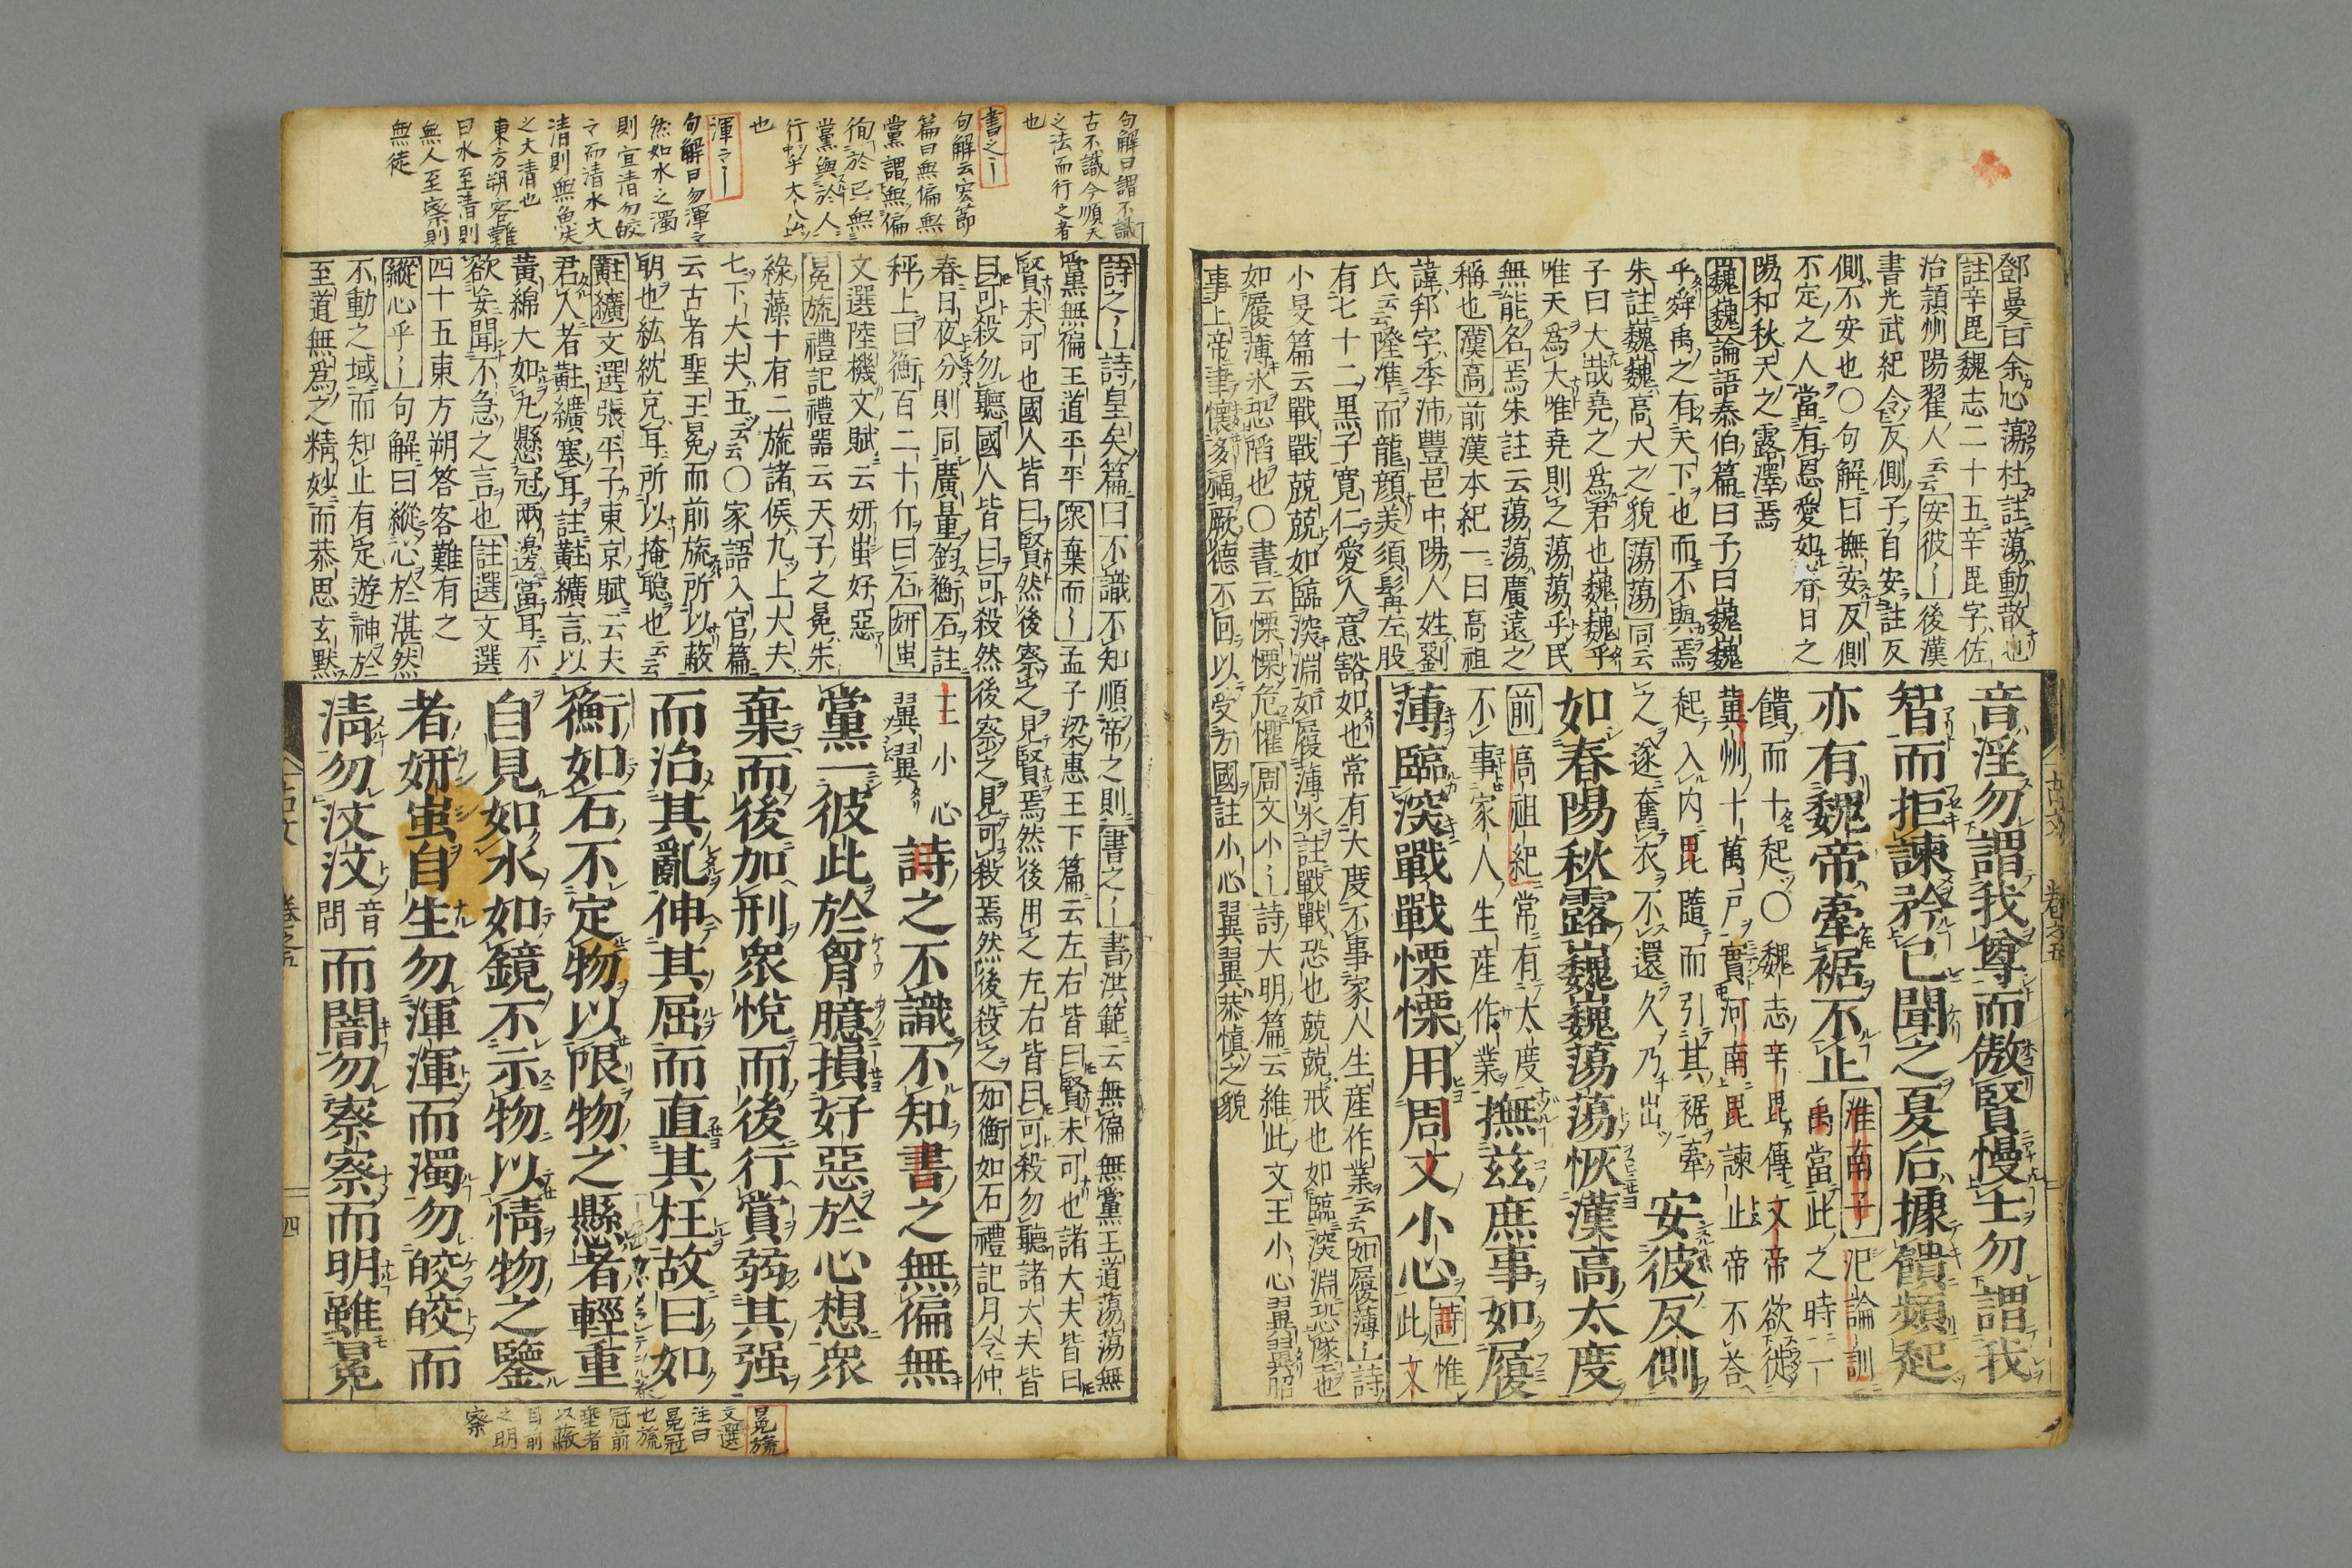 鄧曼曰余心蕩杜註蕩動散也
註辛毘魏志二十五辛毘字佐
治頴州陽翟人云云安彼〡後漢
書光武紀令反側子自安註反
側不安也〇句解曰撫安反側
不定之人當有恩愛如春日之
陽和秋天之露澤焉
巍巍論語泰伯篇曰子曰巍巍
乎舜禹之有天下也而不與焉
朱註巍巍高大之貌蕩蕩同云
子曰大哉堯之爲君也巍巍乎
唯天爲大唯堯則之蕩蕩乎民
無能名焉朱註云蕩蕩廣遠之
稱也漢高前漢本紀一曰高祖
諱邦字季沛豐邑中陽人姓劉
氏云云隆準而龍顔美須髯左股
有七十二黒子寛仁愛人意豁如也常有大度不事家人生産作業云云如履薄〡詩
小旻篇云戰戰兢兢如臨深淵如履薄氷註戰戰恐也兢兢戒也如臨深淵恐墜也
如履薄氷恐陷也〇書云慄慄危懼周文小〡詩大明篇云維此文王小心翼翼昭
事上帝聿懷多福厥德不回以受方國註小心翼翼恭愼之貌
古文 卷之五
音淫勿謂我尊而傲賢慢士勿謂我
智而拒諫矜已聞之夏后據饋頻起
亦有魏帝牽裾不止
淮南子氾論訓
禹當此之時一
饋而十起〇魏志辛毘傳文帝欲徙
冀州十萬戸實河南毘諫止帝不荅
起入内毘隨而引其裾牽
之遂奮衣不還久乃出
安彼反側
如春陽秋露巍巍蕩蕩恢漢高大度
前高祖紀常有大度
不事家人生産作業
撫茲庶事如履
薄臨深戰戰慄慄用周文小心
詩惟
此文
句解曰謂不識
古不識今順天
之法而行之者
也
書之〡
句解云宏範
篇曰無偏無
黨謂無偏
徇於已無
黨與於人
行中乎大公
也
渾〻〡
句解曰勿渾〻
然如水之濁
則宜清勿皎
〻而清水大
清則無魚失
之大清也
東方朔客難
曰水至清則
無人至察則
無徒
詩之〡詩皇矣篇曰不識不知順帝之則書之〡書洪範云無偏無黨王道蕩蕩無
黨無徧王道平平衆棄而〡孟子梁惠王下篇云左右皆曰賢未可也諸大夫皆曰
賢未可也國人皆曰賢然後察之見賢焉然後用之左右皆曰可殺勿聽諸大夫皆
曰可殺勿聽國人皆曰可殺然後察之見可殺焉然後殺之如衡如石禮記月令仲
春日夜分則同廣量鈞衡石註
秤上曰衡百二十斤曰石妍蚩
文選陸機文賦云妍蚩好惡
冕旒禮記禮器云天子之冕朱
綠藻十有二旒諸侯九上大夫
七下大夫五云云〇家語入官篇
云古者聖王冕而前旒所以蔽
明也紘紞充耳所以掩聰也云云
黈纊文選張平子東京賦云夫
君人者黈纊塞耳註黈纊言以
黃綿大如丸懸冠兩邊當耳不
欲妄聞不急之言也註選文選
四十五東方朔答客難有之
縱心乎〡句解曰縱心於湛然
不動之域而知止有定遊神於
至道無爲之精妙而恭思玄默
王小心
翼翼
詩之不識不知書之無偏無
黨一彼此於胷臆損好惡於心想衆
棄而後加刑衆悅而後行賞弱其强
而治其亂伸其屈而直其枉故曰如
衡如石不定物以限物之懸者輕重
自見如水如鏡不示物以情物之鑒
者妍蚩自生勿渾渾而濁勿皎皎而
淸勿汶汶
音
問
而闇勿察察而明雖冕
古文 卷之五 四
冕旒
文選
注曰
冕冠
也旒
冠前
垂者
以蔽
目前
之明
察